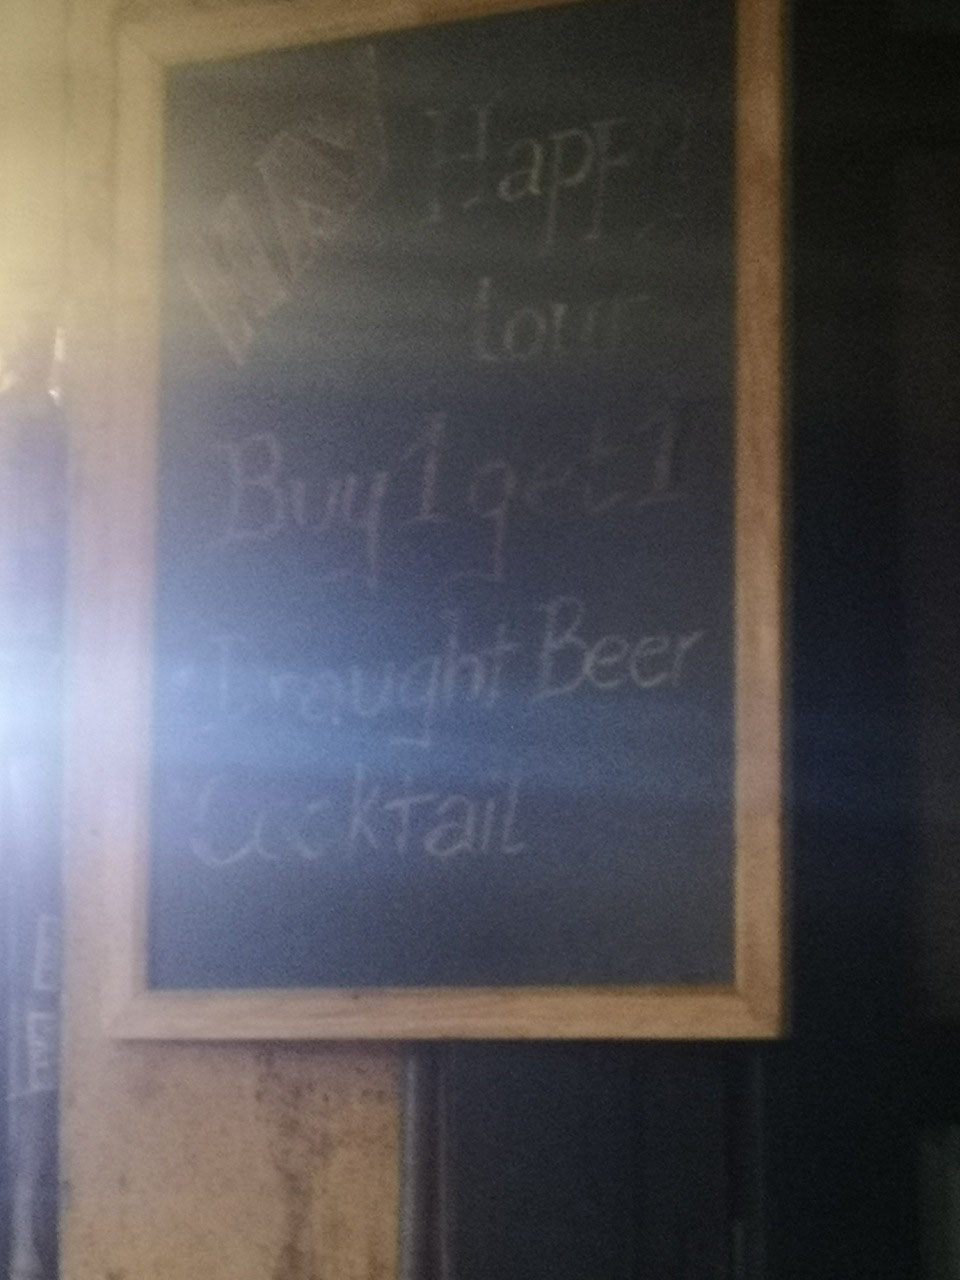 Happy
Hour
Buy 1 get 1
Draught Beer
Cocktail